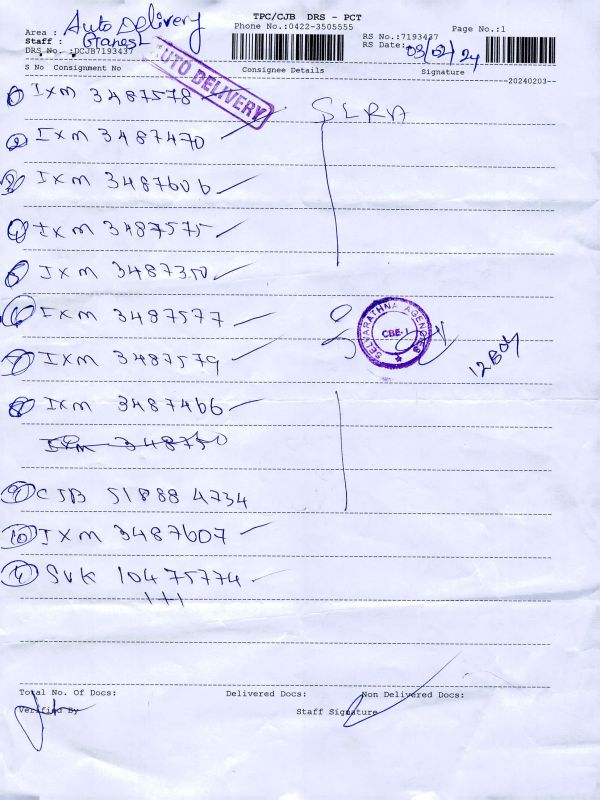 TPC/CJB DRS - PCT
Area : Auto Delivery
Phone No.:0422-3505555
Page No.:1
Staff : Ganesh
RS No.:7193437
DRS No. :DCJB7193437
RS Date: 03/02/24
S No Consignment No Consignee Details Signature
20240203
AUTO DELIVERY
1 IXM 3487578
SLRA
2 IXM 3487470
3 IXM 3487606
4 IXM 3487575
5 IXM 3487350
6 IXM 3487577
SELVARATHNA AGENCIES
CBE-1
7 IXM 3487579
12 Boy
8 IXM 3487466
IXM 348750
9 CJB 51888 4734
10 IXM 3487607
11 SVK 10475774
1+1
Total No. Of Docs: Delivered Docs: Non Delivered Docs:
Verified By Staff Signature